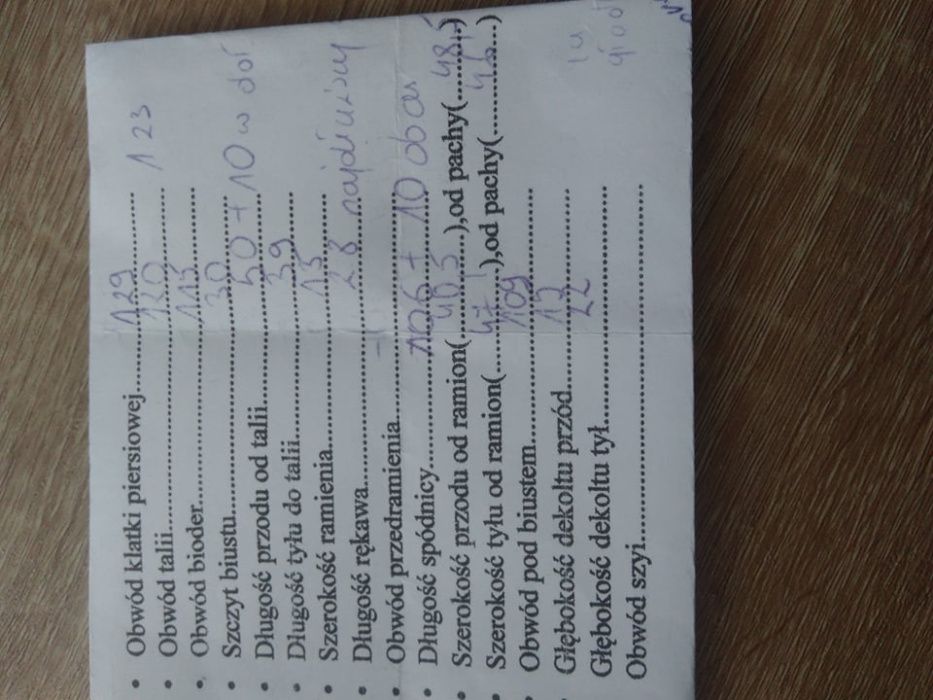 • Obwód klatki piersiowej..........129..........
• Obwód talii..........120.......... 123
• Obwód bioder..........113..........
• Szczyt biustu..........30..........
• Długość przodu od talii..........50 + 10 w dół
• Długość tyłu do talii..........39..........
• Szerokość ramienia..........13..........
• Długość rękawa..........28 najdłuższy
• Obwód przedramienia..........-..........
• Długość spódnicy..........106 + 10 obcas
• Szerokość przodu od ramion(..........40,5..........),od pachy(..........)
• Szerokość tyłu od ramion(..........47..........),od pachy(..........)
• Obwód pod biustem..........109..........
• Głębokość dekoltu przód..........17..........
• Głębokość dekoltu tył..........22..........
Obwód szyi..........